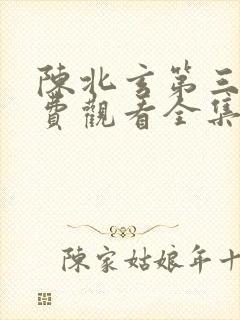 陳北玄第三
費觀看全集
陳家姑娘年十